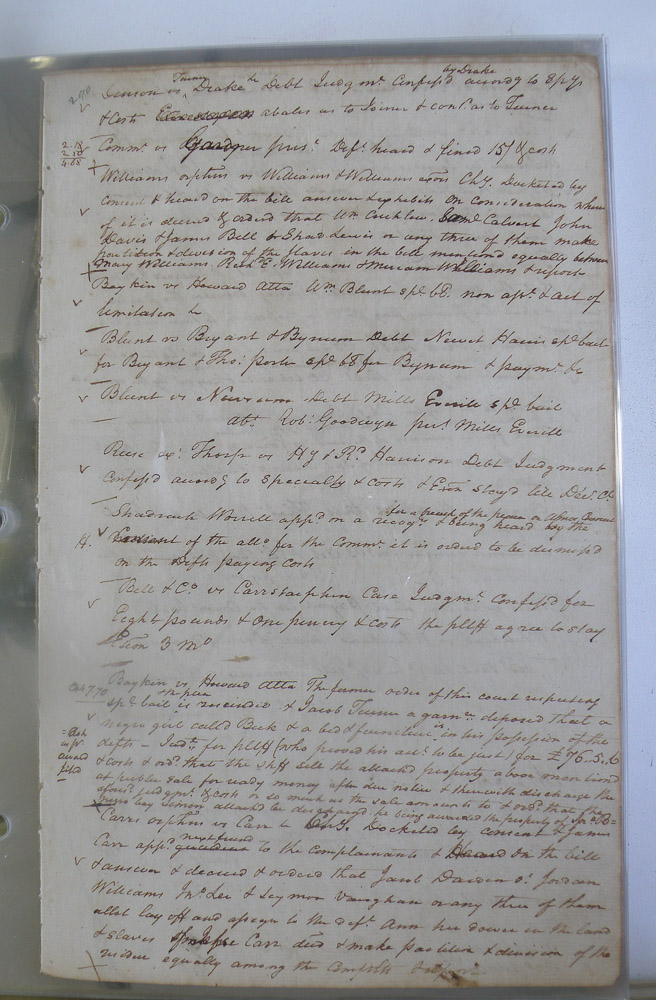 Denson vs Turner Drake &c Debt Judgmt. Confess'd by Drake accordg to Spcy
& Costs abates as to Joiner & cont. as to Turner
Commw. vs Gardner prest. Deft. heard & fined 15/ & cost
2.18
2.10
Williams orphns vs Williams & Williams Chy. Docketed by
consent & heard on the bill answer & exhibits on consideration whereof
it is decreed & orderd that Wm Calvert John
Davis & James Bell Shad. Lewis or any three of them make
partition & division of the slaves in the bill mentioned equally between
Mary Williams, Beth E. Williams & Miriam Williams & report
Baykin vs Howard Atta Wm. Blunt spl. bl. non apt. & act of
limitation &c
Blunt vs Bryant & Bynum Debt Newit Harris spl. bail
for Bryant & Tho: Porter spl. bl for Bynum & paymt. &c
Blunt vs Newsum Debt Mills Everitt spl. bail
att. Rob: Goodwyn prest Mills Everitt
Reese exr. Thorp vs Hy & Rd. Harrison Debt Judgment
Confess'd accordg to specialty & costs & Exon stay'd till Decr. Ct.
Shadrach Worrell appd. on a recogz. for a breach of the peace on & being heard by the
H. Consent of the atto. for the Commw. it is ordered to be dismiss'd
on the Defts paying costs
Bell & Co. vs Carrstaiphen Case Judgmt. confess'd for
Eight pounds & one penny & costs the pltff agree to stay
Exon 3 mo
Baykin vs Howard Atta The former order of this court respecting
spl. bail & the plea is rescinded & Jacob Turner a garnee. deposed that a
negro girl call'd Beck & a bed & furniture in his possession of the
defts - Judt. for pltff (who proved his act. to be just) for £76.5.6
& costs & ord. that the shff sell the attach'd property above mentioned
at public sale for ready money after due notice & therewith discharge the
aforest. judgmt. & costs or so much as the sale amounts to & ord. that the
negro boy Simon attach'd be discharged he being awarded the property of
Carrs orphns vs Carr &c Chy. Docketed by consent & James
Carr appd. next friend to the complainants & Heard on the bill
& answer & decreed & ordered that Jacob Darden Sr. Jordan
Williams Jno. Lee & Seymor Vaughan or any three of them
allot lay off and assign to the deft. Ann her dower in the land
& slaves Carr decd & make partition & division of the
residue equally among the Complts & report